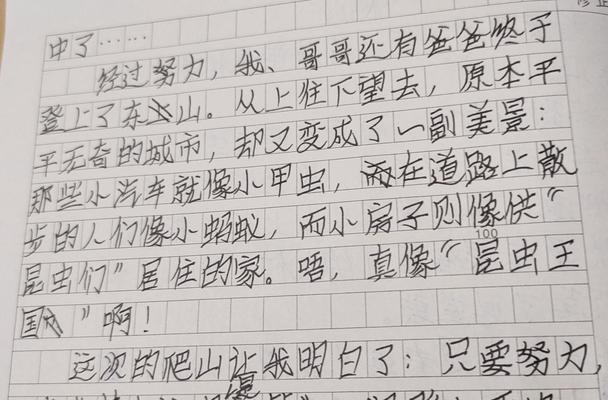 修正
中了……
经过努力，我、哥哥还有爸爸终于
登上了东山。从上往下望去，原本平
平无奇的城市，却又变成了一副美景：
那些小汽车就像小甲虫，而在道路上散
步的人们像小蚂蚁，而小房子则像供“
100
昆虫们”居住的家。唔，真像“昆虫王
国”啊！
这次的爬山让我明白了：只要努力，